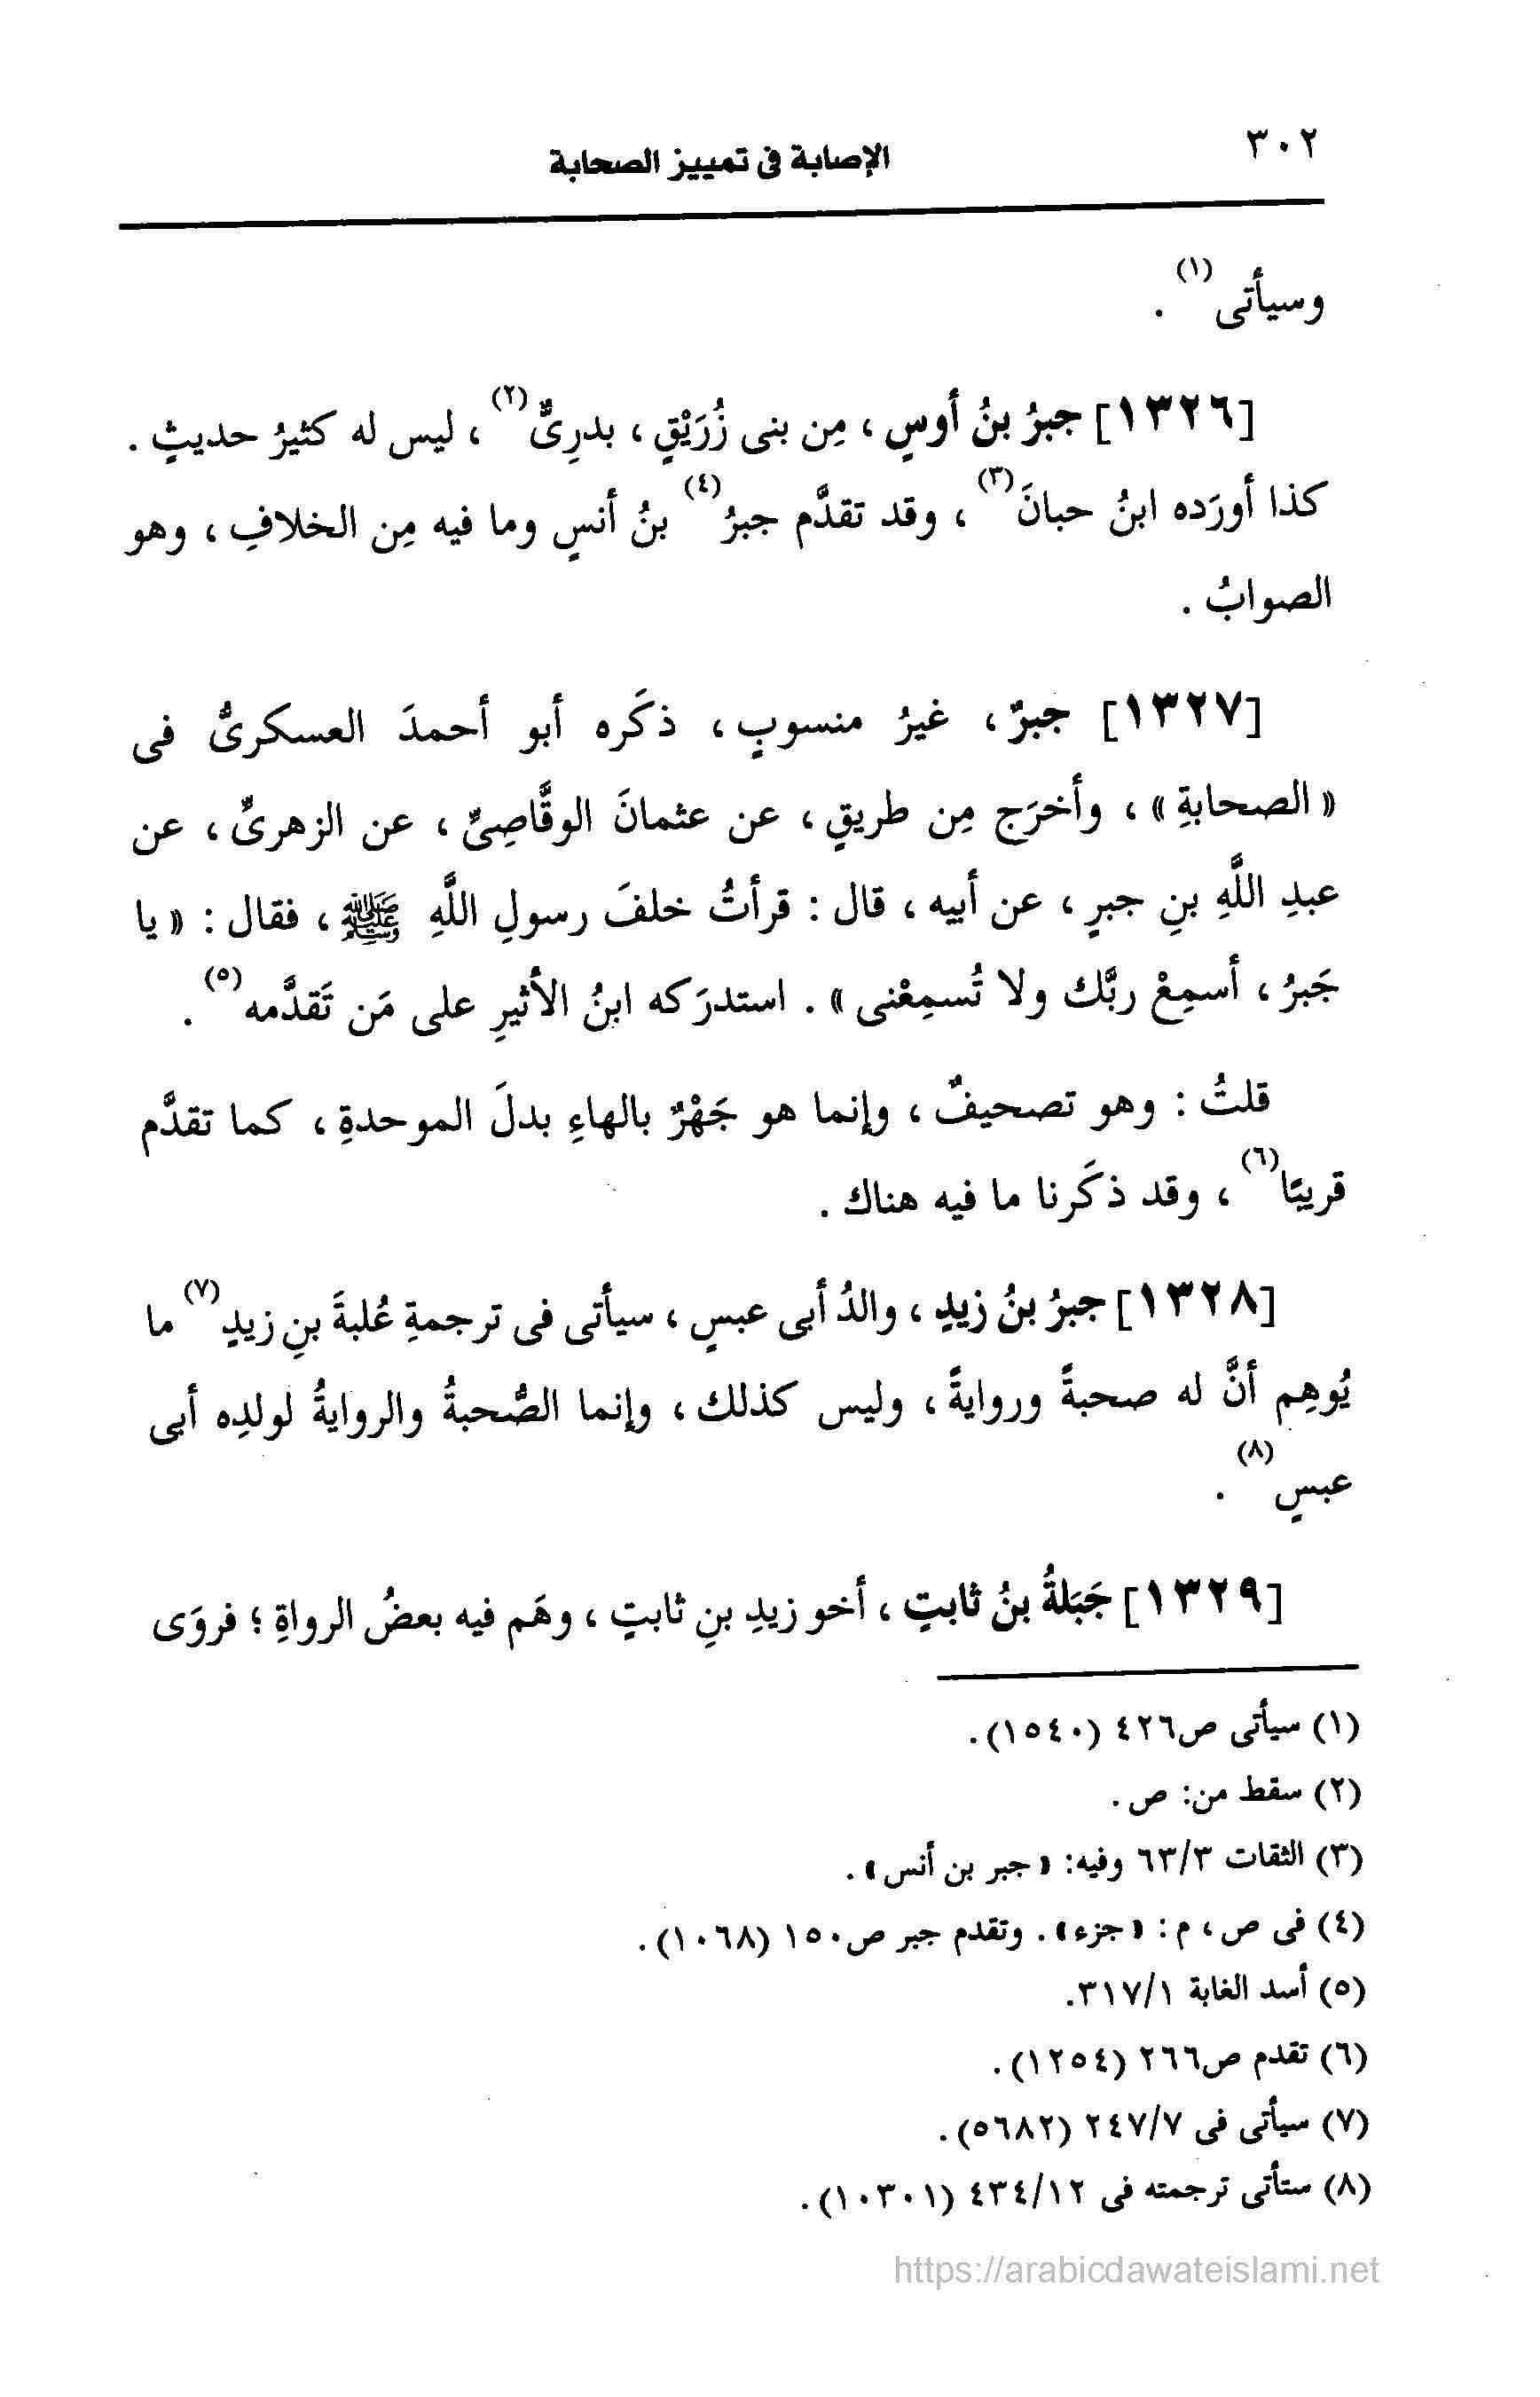 ٣٠٢
الإصابة فى تمييز الصحابة
وسيأتى(١) .
[١٣٢٦] جبرُ بنُ أوسٍ ، مِن بنى زُرَيْقٍ ، بدرِىٌّ(٢) ، ليس له كثيرُ حديثٍ .
كذا أورَده ابنُ حبانَ(٣) ، وقد تقدَّم جبرُ(٤) بنُ أنسٍ وما فيه مِن الخلافِ ، وهو
الصوابُ .
[١٣٢٧] جبرٌ ، غيرُ منسوبٍ ، ذكَره أبو أحمدَ العسكرىُّ فى
« الصحابةِ » ، وأخرَج مِن طريقٍ ، عن عثمانَ الوقَّاصِىِّ ، عن الزهرىِّ ، عن
عبدِ اللَّهِ بنِ جبرٍ ، عن أبيه ، قال : قرأتُ خلفَ رسولِ اللَّهِ ﷺ ، فقال : « يا
جَبرُ ، أسمِعْ ربَّك ولا تُسمِعْنى » . استدرَكه ابنُ الأثيرِ على مَن تَقدَّمه(٥) .
قلتُ : وهو تصحيفٌ ، وإنما هو جَهْرٌ بالهاءِ بدلَ الموحدةِ ، كما تقدَّم
قريبًا(٦) ، وقد ذكَرنا ما فيه هناك .
[١٣٢٨] جبرُ بنُ زيدٍ ، والدُ أبى عبسٍ ، سيأتى فى ترجمةِ عُلبةَ بنِ زيدٍ(٧) ما
يُوهِم أنَّ له صحبةً وروايةً ، وليس كذلك ، وإنما الصُّحبةُ والروايةُ لولدِه أبى
عبسٍ(٨) .
[١٣٢٩] جَبَلةُ بنُ ثابتٍ ، أخو زيدِ بنِ ثابتٍ ، وهَم فيه بعضُ الرواةِ ؛ فروَى
(١) سيأتى ص٤٢٦ (١٥٤٠).
(٢) سقط من: ص .
(٣) الثقات ٦٣/٣ وفيه: « جبر بن أنس » .
(٤) فى ص ، م : « جزء » . وتقدم جبر ص١٥٠ (١٠٦٨) .
(٥) أسد الغابة ٣١٧/١.
(٦) تقدم ص٢٦٦ (١٢٥٤) .
(٧) سيأتى فى ٢٤٧/٧ (٥٦٨٢) .
(٨) ستأتى ترجمته فى ٤٣٤/١٢ (١٠٣٠١) .
https://arabicdawateislami.net